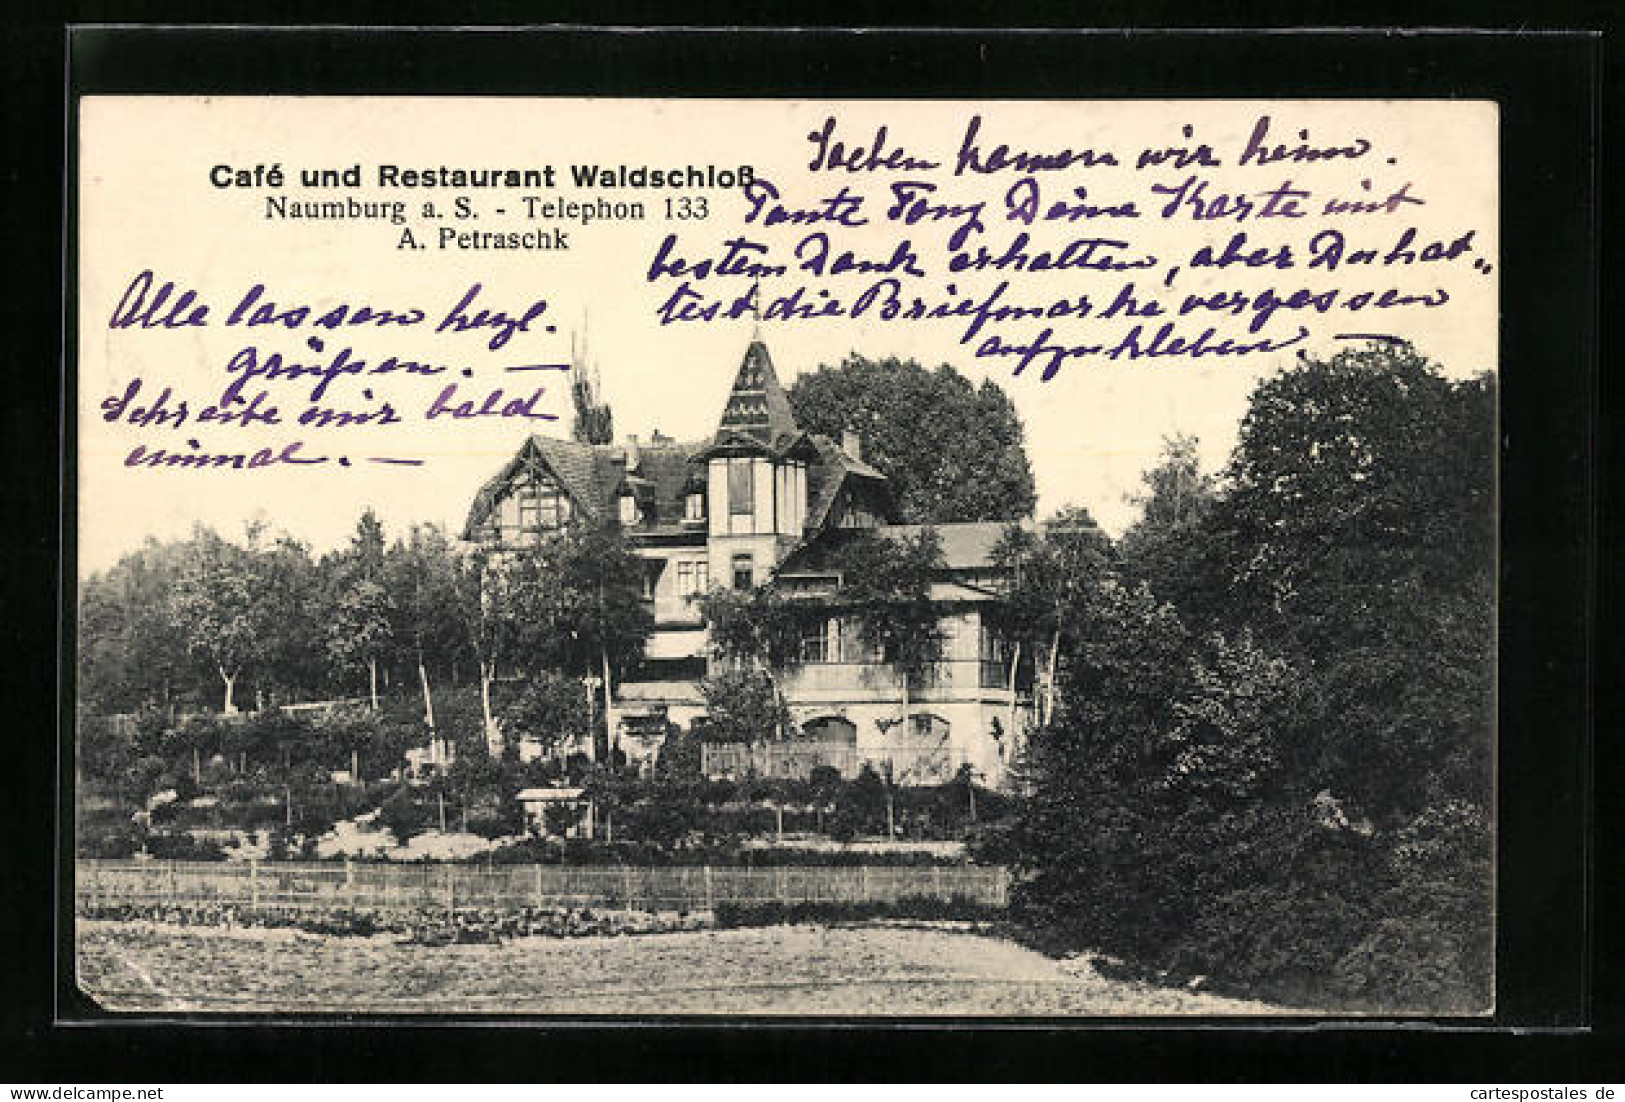 Café und Restaurant Waldschloß
Naumburg a. S. - Telephon 133
A. Petraschk
Soeben kamen wir heim.
Tante Deine Karte mit
bestem Dank erhalten, aber Du hat„
test die Briefmarke vergessen
aufzukleben. —
Alle lassen herzl.
grüßen. —
Schreibe mir bald
einmal. —
cartespostales de